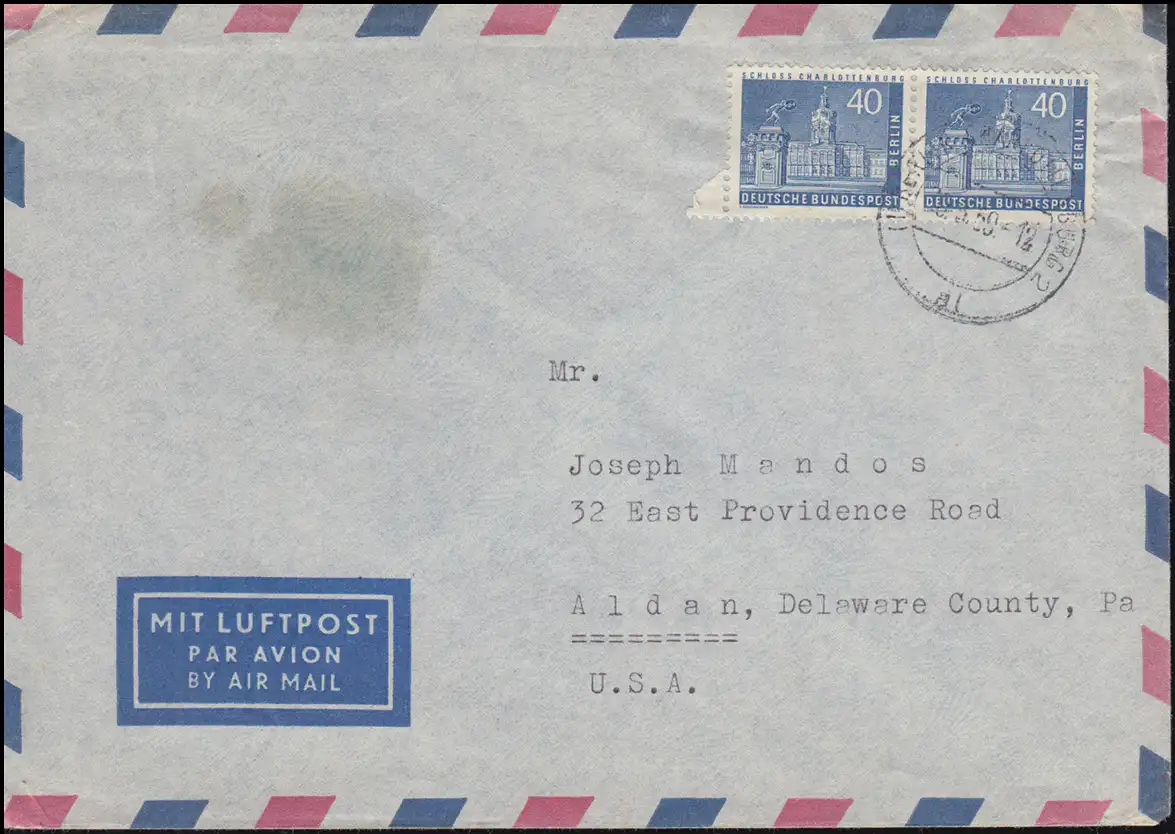 SCHLOSS CHARLOTTENBURG
40
BERLIN
DEUTSCHE BUNDESPOST
SCHLOSS CHARLOTTENBURG
40
BERLIN
DEUTSCHE BUNDESPOST
BURG 2
60.-12
al
Mr.
Joseph M a n d o s
32 East Providence Road
A l d a n, Delaware County, Pa
=========
U.S.A.
MIT LUFTPOST
PAR AVION
BY AIR MAIL